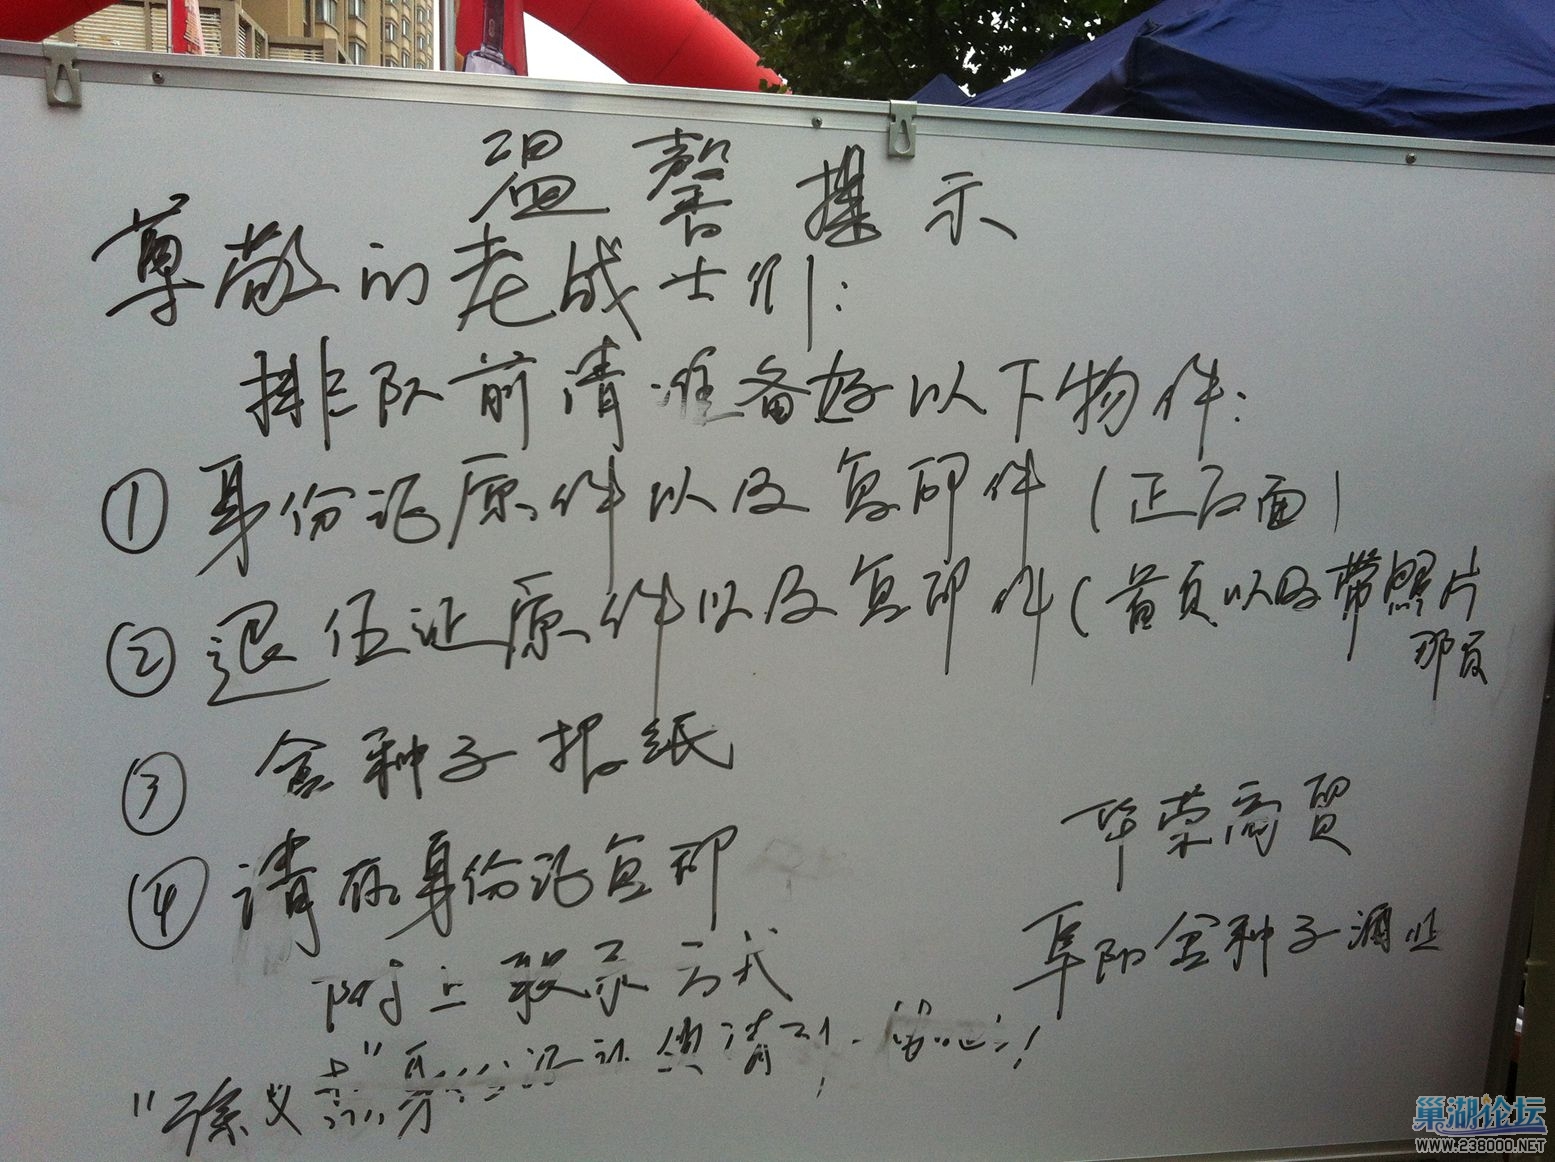 温馨提示
尊敬的老战士们:
排队前请准备好以下物件:
① 身份证原件以及复印件(正反面)
② 退伍证原件以及复印件(首页以及带照片
那页
③ 金种子报纸
④ 请在身份证复印
附上联系方式
华荣商贸
阜阳金种子酒业
"徐义
身份证
请
巢湖论坛
WWW.238000.NET